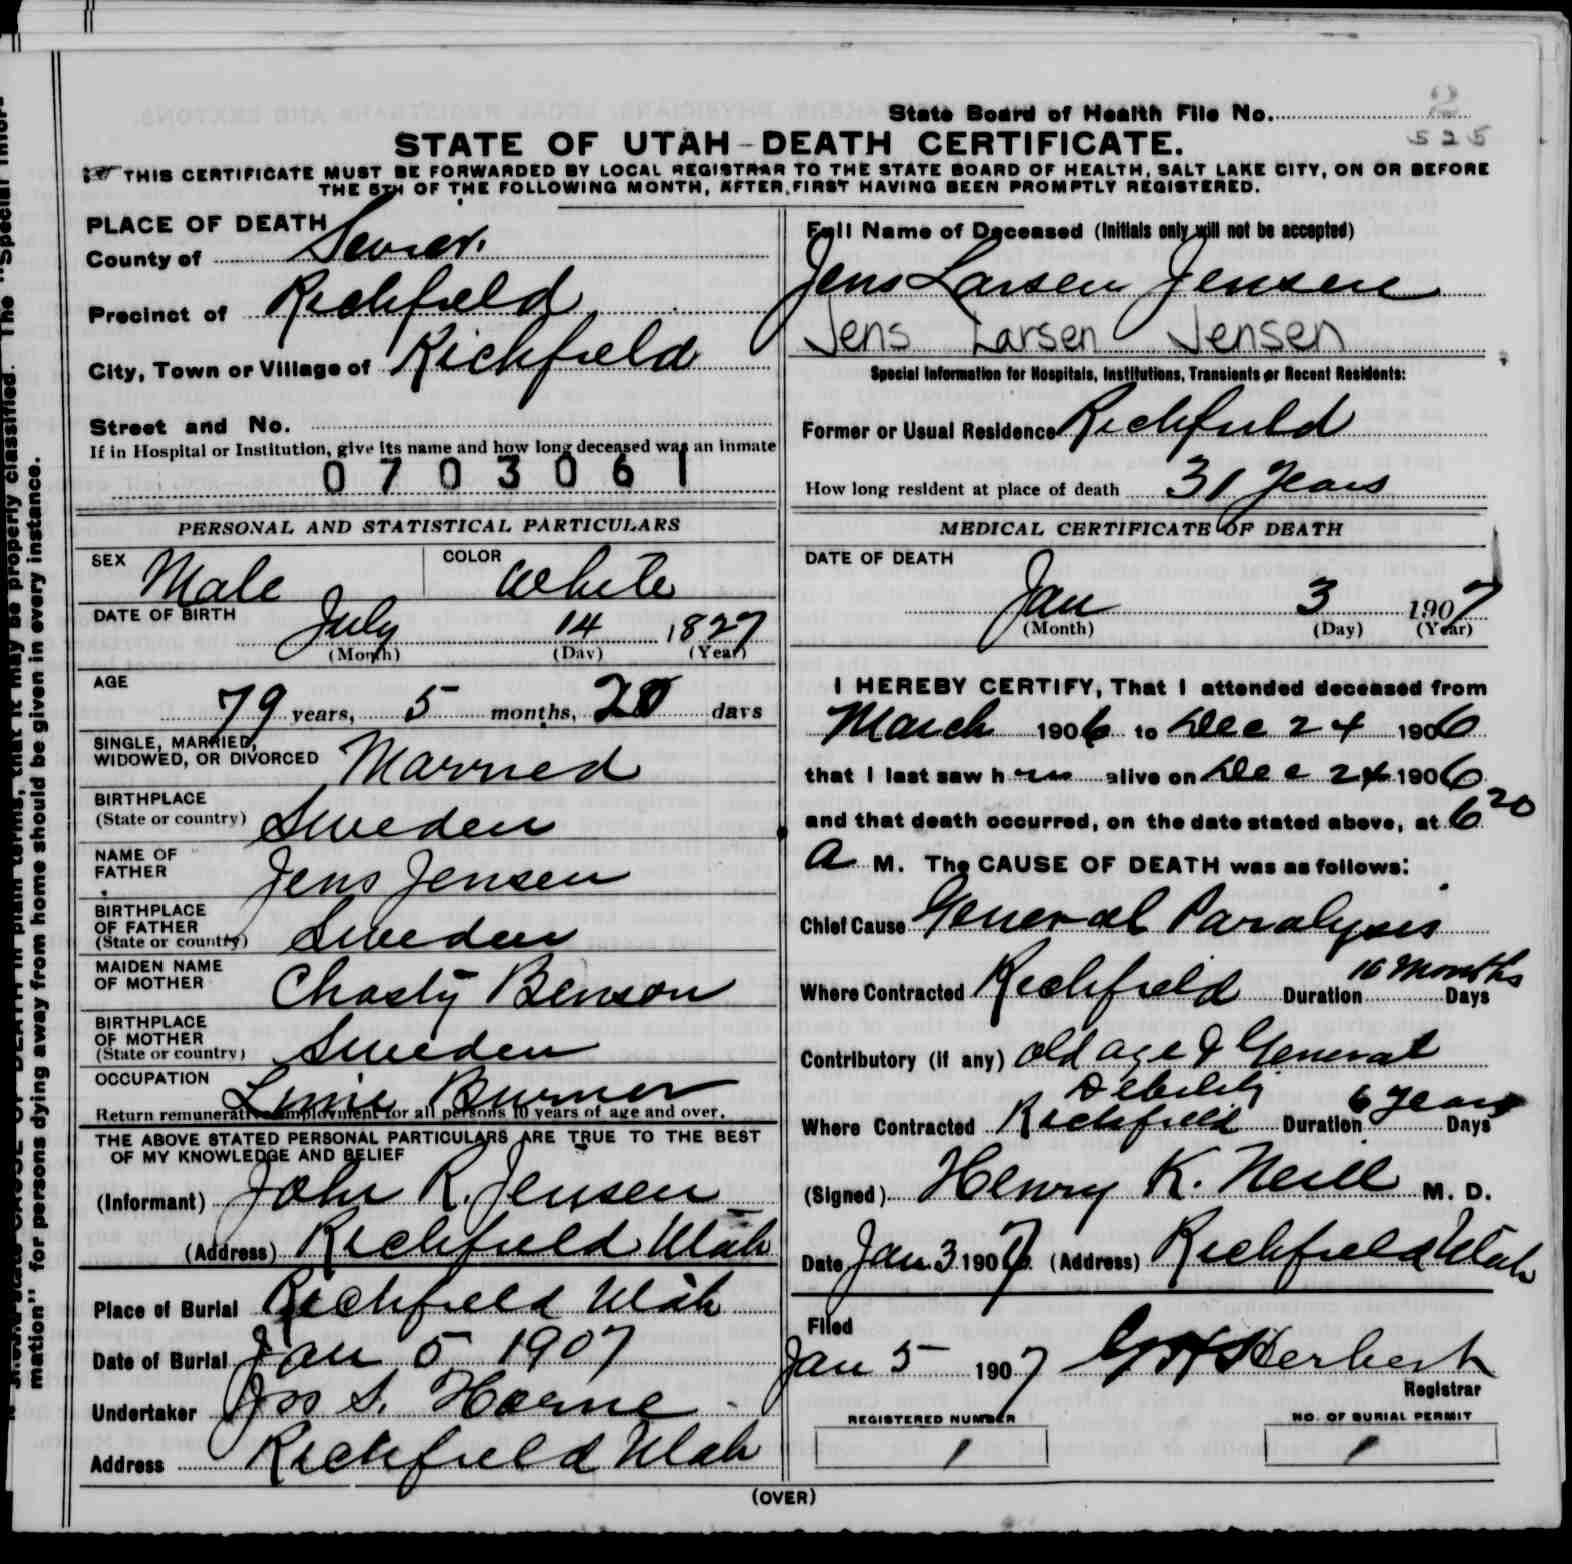 State Board of Health File No. 2
525
STATE OF UTAH-DEATH CERTIFICATE.
THIS CERTIFICATE MUST BE FORWARDED BY LOCAL REGISTRAR TO THE STATE BOARD OF HEALTH, SALT LAKE CITY, ON OR BEFORE
THE 5TH OF THE FOLLOWING MONTH, AFTER FIRST HAVING BEEN PROMPTLY REGISTERED.
PLACE OF DEATH
County of Sevier.
Precinct of Richfield
City, Town or Village of Richfield
Street and No.
If in Hospital or Institution, give its name and how long deceased was an inmate
0703061
PERSONAL AND STATISTICAL PARTICULARS
SEX Male COLOR White
DATE OF BIRTH
July 14 1827
(Month) (Day) (Year)
AGE
79 years, 5 months, 20 days
SINGLE, MARRIED,
WIDOWED, OR DIVORCED Married
BIRTHPLACE
(State or country) Sweden
NAME OF
FATHER Jens Jensen
BIRTHPLACE
OF FATHER
(State or country) Sweden
MAIDEN NAME
OF MOTHER Chasty Benson
BIRTHPLACE
OF MOTHER
(State or country) Sweden
OCCUPATION Lime Burner
Return remunerative employment for all persons 10 years of age and over.
THE ABOVE STATED PERSONAL PARTICULARS ARE TRUE TO THE BEST
OF MY KNOWLEDGE AND BELIEF
(Informant) John R. Jensen
(Address) Richfield Utah
Place of Burial Richfield Utah
Date of Burial Jan 5 1907
Undertaker Jos S. Horne
Address Richfield Utah
Full Name of Deceased (Initials only will not be accepted)
Jens Larsen Jensen
Jens Larsen Jensen
Special Information for Hospitals, Institutions, Transients or Recent Residents:
Former or Usual Residence Richfield
How long resident at place of death 31 Years
MEDICAL CERTIFICATE OF DEATH
DATE OF DEATH
Jan 3 1907
(Month) (Day) (Year)
I HEREBY CERTIFY, That I attended deceased from
March 1906 to Dec 24 1906
that I last saw him alive on Dec 24 1906
and that death occurred, on the date stated above, at 6 20
A M. The CAUSE OF DEATH was as follows:
Chief Cause General Paralysis
Where Contracted Richfield Duration 16 Months Days
Contributory (if any) old age & General
Debility
Where Contracted Richfield Duration 6 years Days
(Signed) Henry K. Neill M. D.
Date Jan 3 1907 (Address) Richfield Utah
Filed
Jan 5 1907 Herbert
Registrar
REGISTERED NUMBER
1
NO. OF BURIAL PERMIT
1
(OVER)
mation" for persons dying away from home should be given in every instance.
CAUSE OF DEATH in plain terms, that it may be properly classified. The "Special Infor-